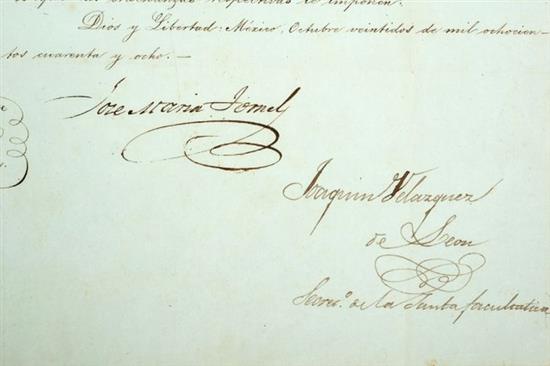 respectivas se imponen.
Dios y Libertad. México, Octubre veintidos de mil ochocien-
tos cuarenta y ocho. —
Jose Maria Tornel
Joaquin Velazquez
de Leon
Secreo. de la Junta facultativa